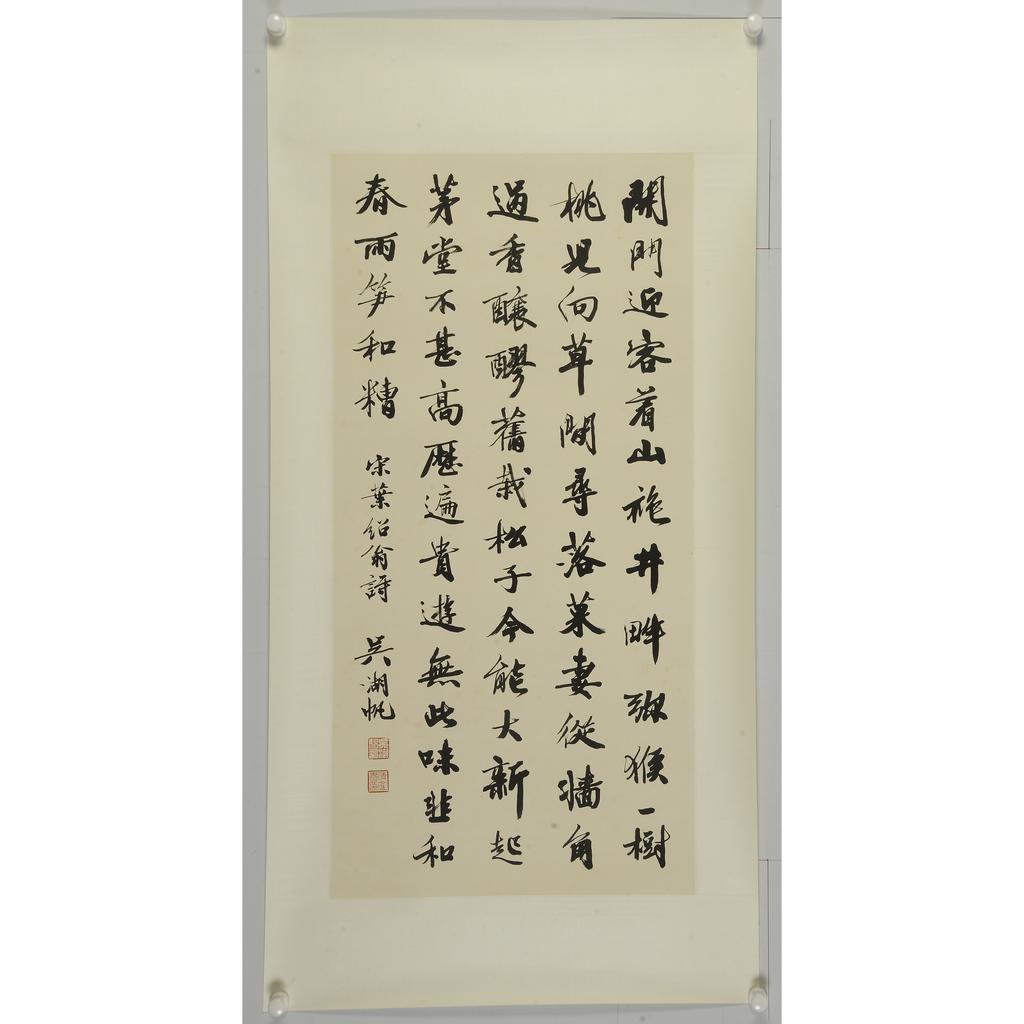 開門迎客着山袍井畔獼猴一樹
桃兒向草間尋落菓妻從牆角
過香釀醪舊栽松子今能大新起
茅堂不甚高歷遍貴遊無此味韭和
春雨笋和糟 宋葉紹翁詩 吳湖帆